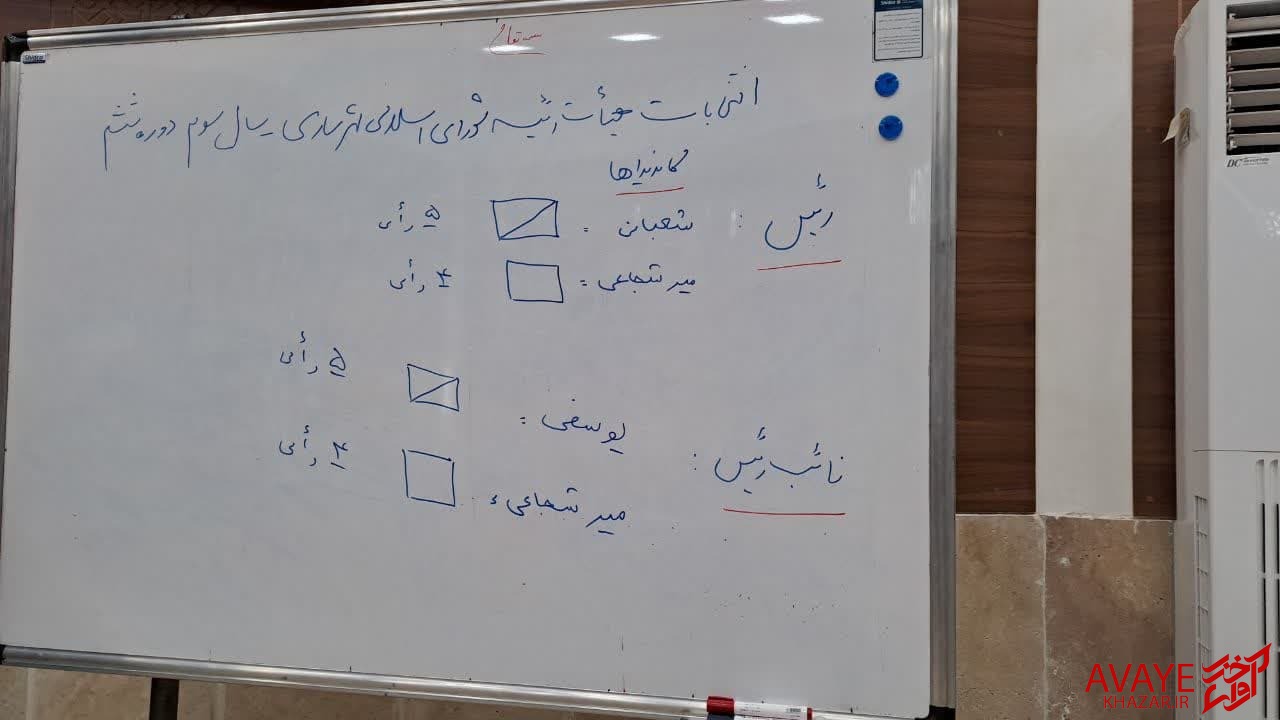 بسمه تعالی
انتخابات هیأت رئیسه شورای اسلامی شهر ساری سال سوم دوره ششم
کاندیداها
رئیس : شعبانی : ۵ رأی
میر شجاعی : ۴ رأی
نائب رئیس : یوسفی : ۵ رأی
میر شجاعی : ۴ رأی
DC Inverter
آوای خزر
AVAYE
KHAZAR.IR